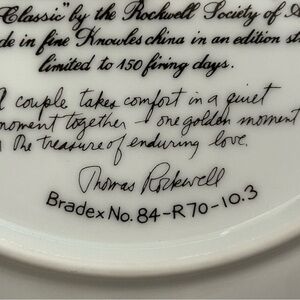 Classic" by the Rockwell Society of
de in fine Knowles china in an edition
limited to 150 firing days.
A couple takes comfort in a quiet
moment together - one golden moment
the treasure of enduring love.
Thomas Rockwell
Bradex No. 84-R70-10.3